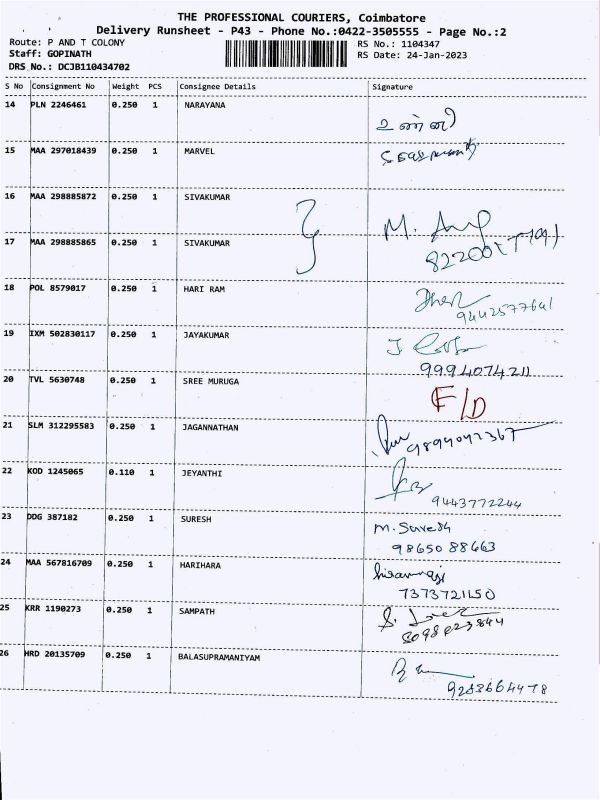 THE PROFESSIONAL COURIERS, Coimbatore
Delivery Runsheet - P43 - Phone No.:0422-3505555 - Page No.:2
Route: P AND T COLONY RS No.: 1104347
Staff: GOPINATH RS Date: 24-Jan-2023
DRS No.: DCJB110434702
S No Consignment No Weight PCS Consignee Details Signature
14 PLN 2246461 0.250 1 NARAYANA
உண்ணி
15 MAA 297018439 0.250 1 MARVEL
16 MAA 298885872 0.250 1 SIVAKUMAR
M.
17 MAA 298885865 0.250 1 SIVAKUMAR
18 POL 8579017 0.250 1 HARI RAM
9442577641
19 IXM 502830117 0.250 1 JAYAKUMAR
J
9994074211
20 TVL 5630748 0.250 1 SREE MURUGA
F/D
21 SLM 312295583 0.250 1 JAGANNATHAN
9894042367
22 KOD 1245065 0.110 1 JEYANTHI
9443772244
23 DDG 387182 0.250 1 SURESH
M. Suresh
98650 88663
24 MAA 567816709 0.250 1 HARIHARA
7373721150
25 KRR 1190273 0.250 1 SAMPATH
S.
8098023844
26 HRD 20135709 0.250 1 BALASUPRAMANIYAM
9283664478